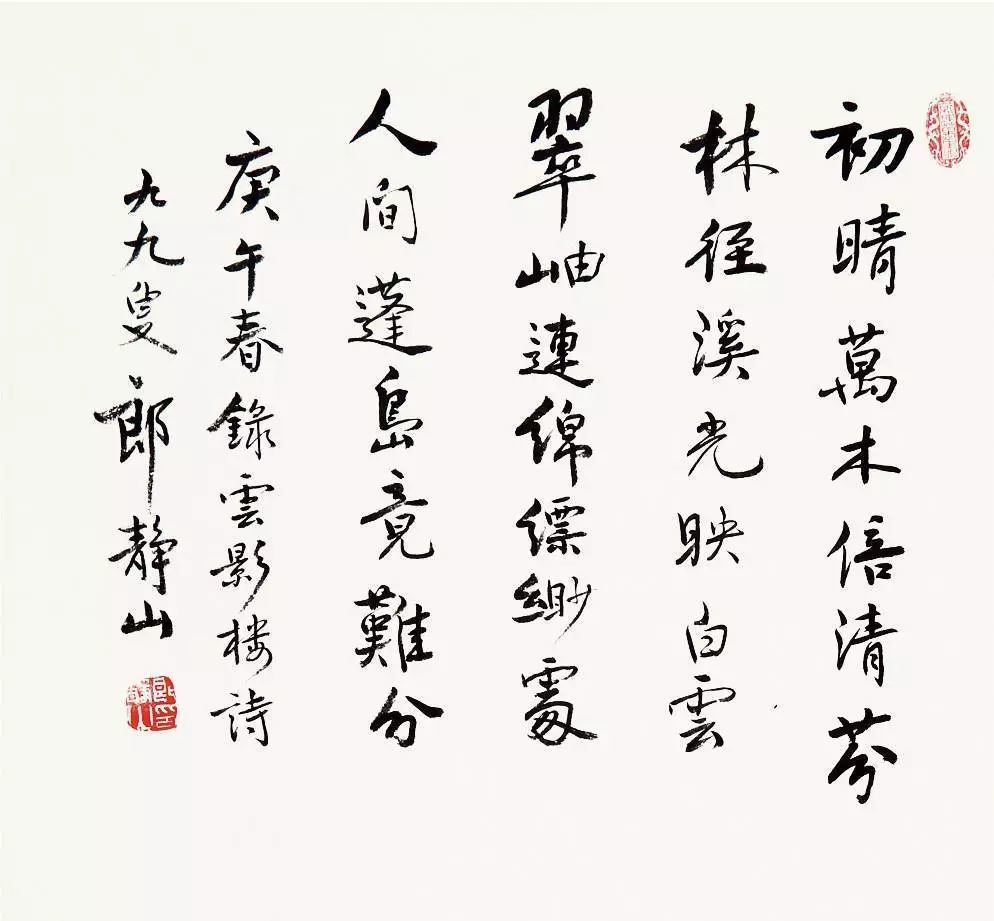 初晴萬木倍清芬
林徑溪光映白雲
翠岫連綿縹緲處
人間蓬島竟難分
庚午春錄雲影樓詩
九九叟郎靜山